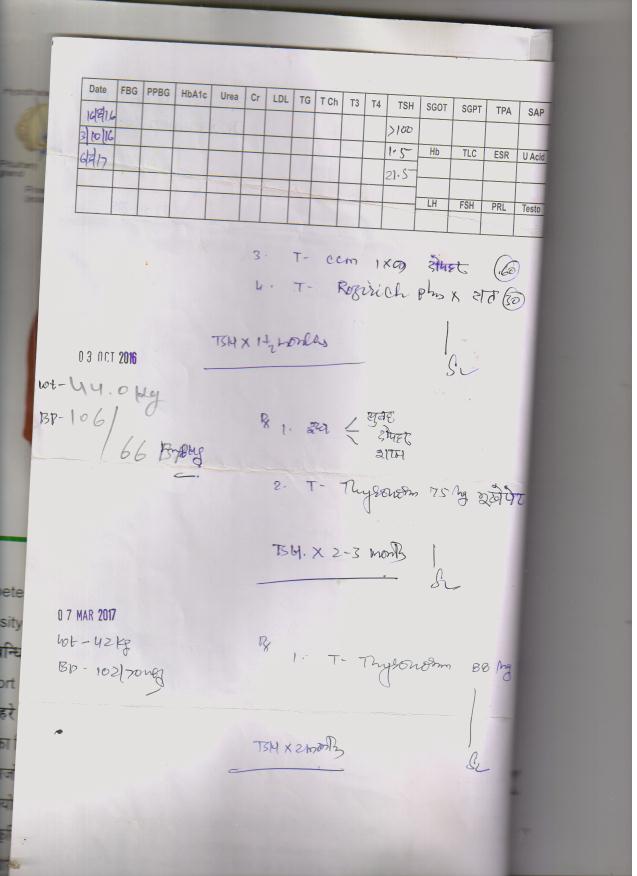 Date FBG PPBG HbA1c Urea Cr LDL TG T Ch T3 T4 TSH SGOT SGPT TPA SAP
16/8/16 >100
3/10/16 1.5 Hb TLC ESR U Acid
6/3/17 21.5
LH FSH PRL Testo
3. T- ccm 1x दोपहर 60
4. T- plus x रात 30
TSH x 1½ months
03 OCT 2016
wt- 44.0 kg
BP- 106/66
Rx 1. सुबह
दोपहर
शाम
2. T- Thyronorm 75 भूखे पेट
TSH. x 2-3 month
07 MAR 2017
wt- 42kg
BP- 102/70
Rx
1. T- Thyronorm 88
TSH x 2 month